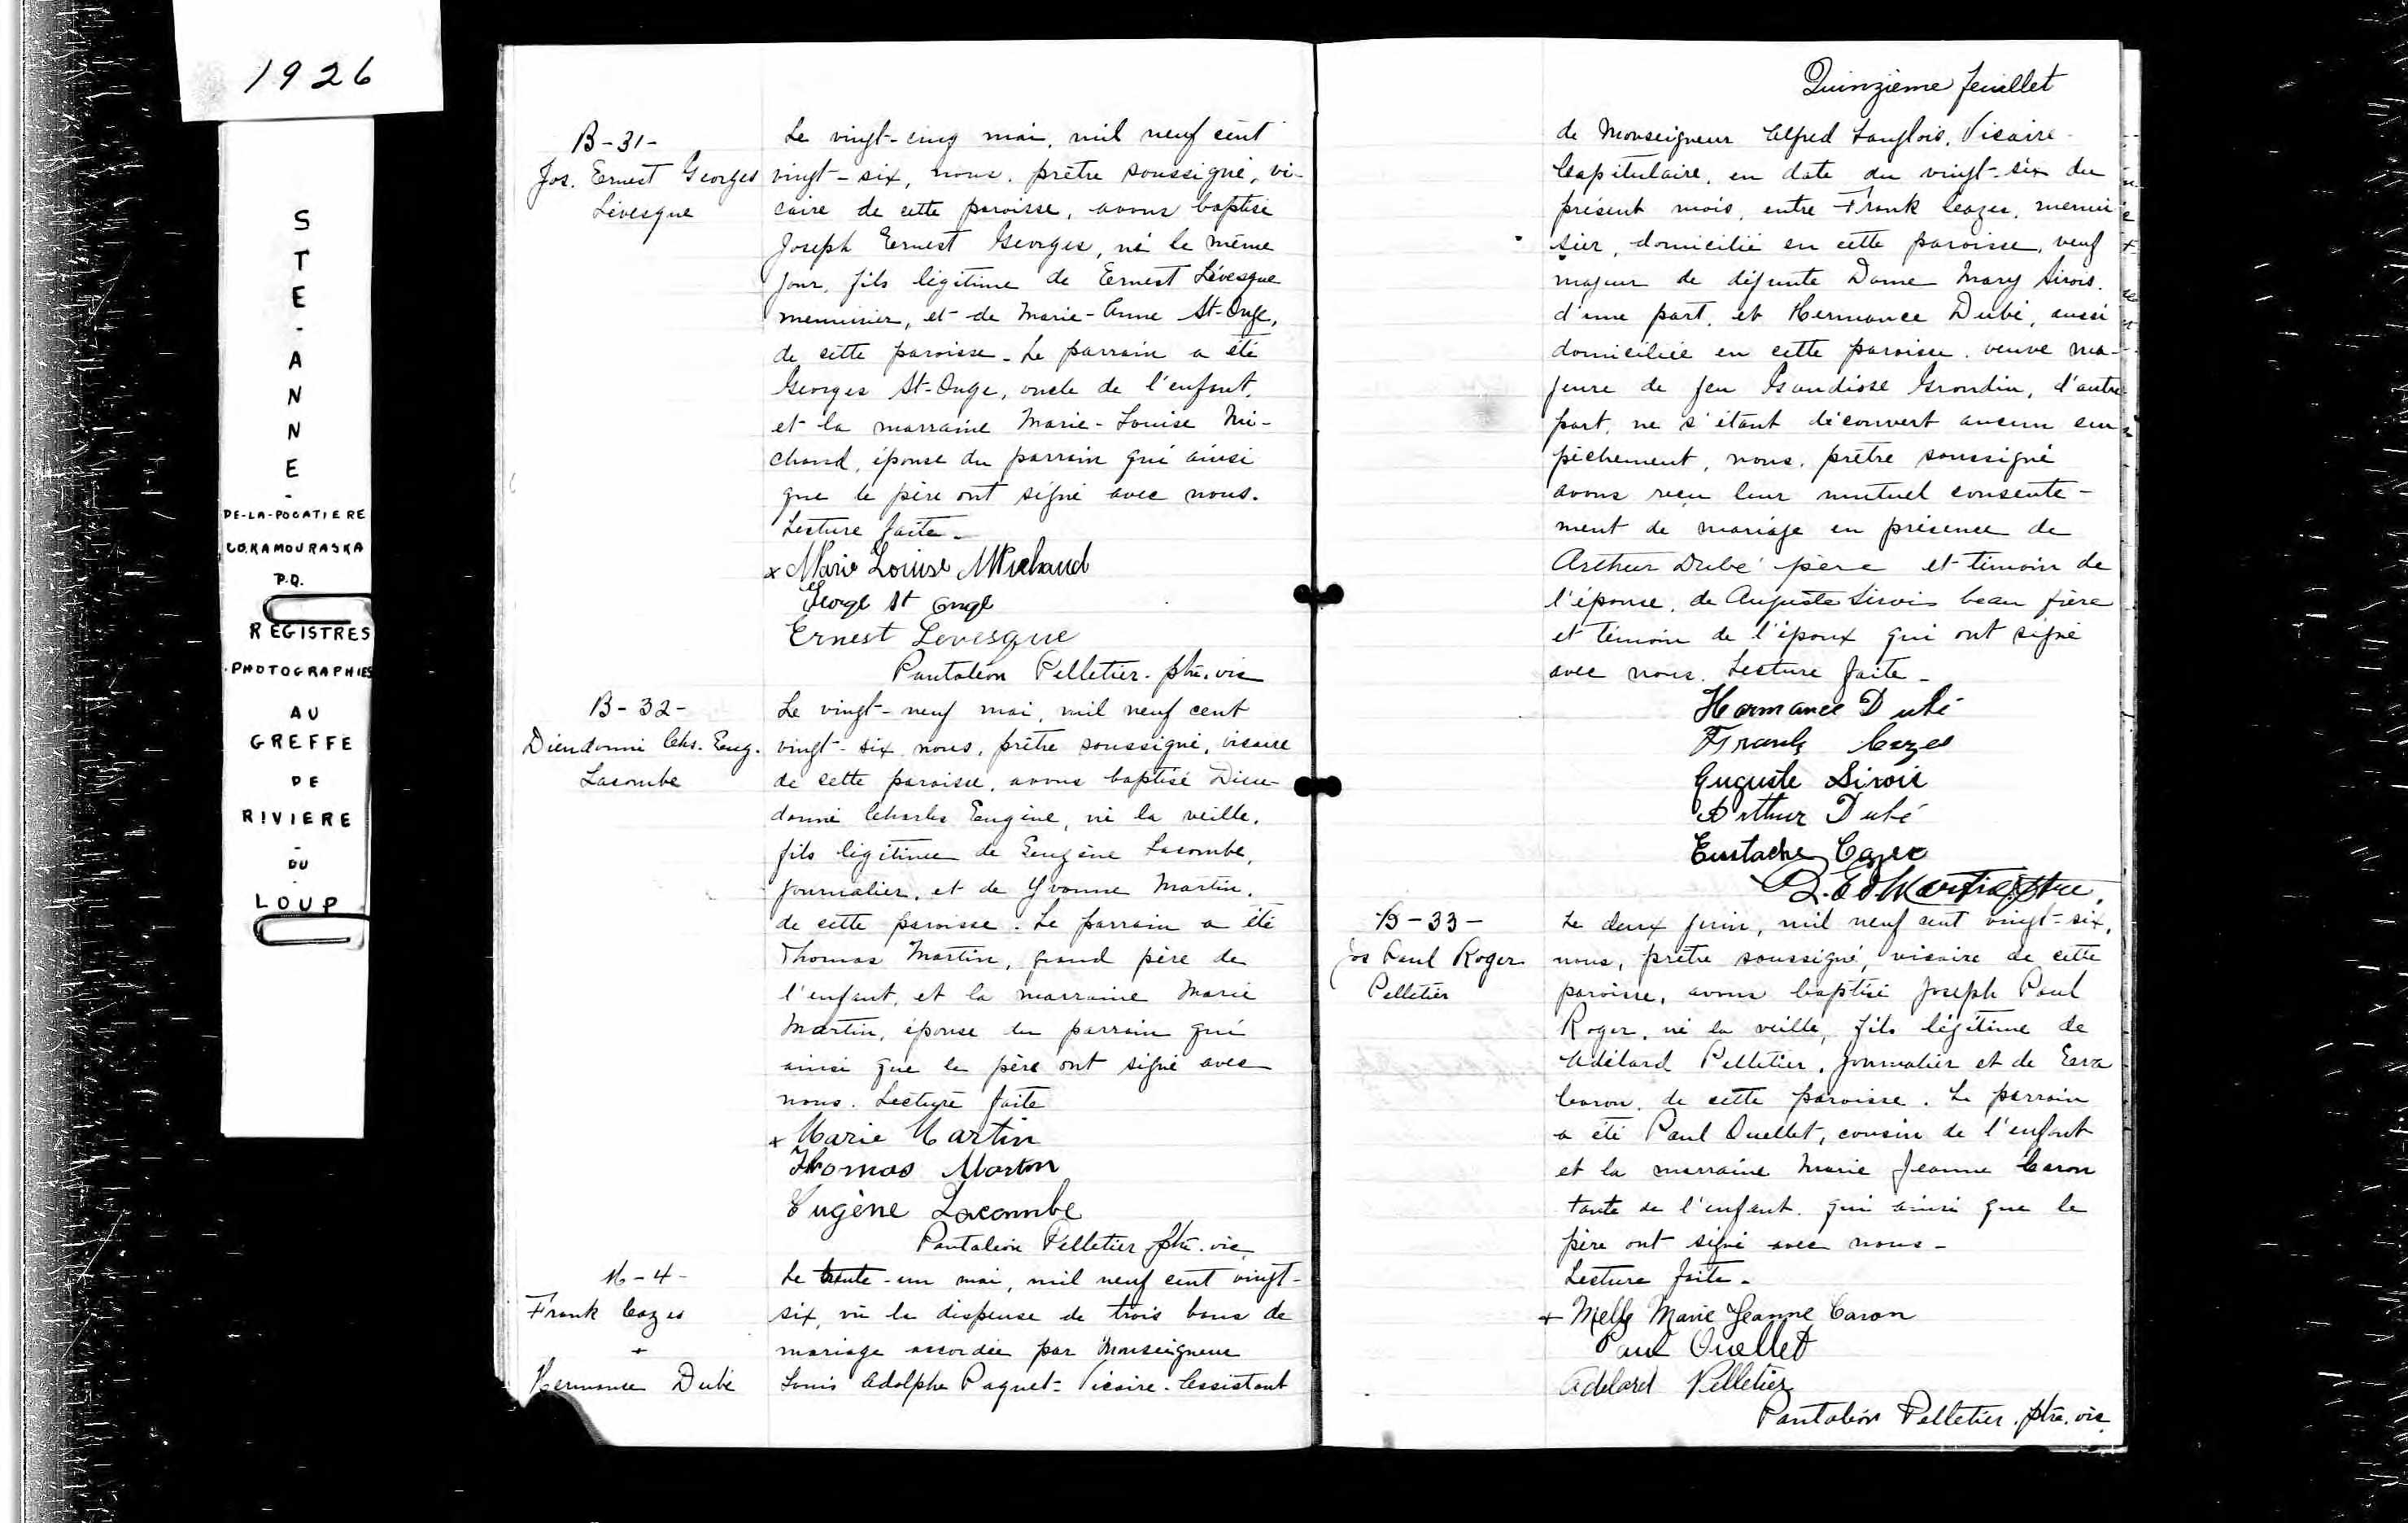 1926
STE-ANNE-
DE-LA-POCATIERE
CO. KAMOURASKA
P.Q.
REGISTRES
PHOTOGRAPHIES
AU
GREFFE
DE
RIVIERE
-
DU
-
LOUP
B-31-
Jos. Ernest Georges
Lévesque
Le vingt-cinq mai, mil neuf cent
vingt-six, nous, prêtre soussigné, vi-
caire de cette paroisse, avons baptisé
Joseph Ernest Georges, né le même
jour, fils légitime de Ernest Lévesque
menuisier, et de Marie-Anne St-Onge,
de cette paroisse. Le parrain a été
Georges St-Onge, oncle de l'enfant,
et la marraine Marie-Louise Mi-
chaud, épouse du parrain qui ainsi
que le père ont signé avec nous.
Lecture faite.
x Marie Louise Michaud
George St Onge
Ernest Levesque
Pantaléon Pelletier. ptre. vic
B-32-
Dieudonné Chs. Eug.
Lacombe
Le vingt-neuf mai, mil neuf cent
vingt-six, nous, prêtre soussigné, vicaire
de cette paroisse, avons baptisé Dieu-
donné Charles Eugène, né la veille,
fils légitime de Eugène Lacombe,
journalier, et de Yvonne Martin,
de cette paroisse. Le parrain a été
Thomas Martin, grand père de
l'enfant, et la marraine Marie
Martin, épouse du parrain qui
ainsi que le père ont signé avec
nous. Lecture faite
x Marie Martin
Thomas Martin
Eugène Lacombe
Pantaléon Pelletier ptre. vic.
M-4-
Frank Cazes
+
Hermance Dubé
Le trente-un mai, mil neuf cent vingt-
six, vu la dispense de trois bans de
mariage accordée par Monseigneur
Louis Adolphe Paquet- Vicaire-Assistant
Quinzième feuillet
de Monseigneur Alfred Langlois, Vicaire-
Capitulaire, en date du vingt-six du
présent mois, entre Frank Cazes, menui
sier, domicilié en cette paroisse, veuf
majeur de défunte Dame Mary Sirois.
d'une part, et Hermance Dubé, aussi
domiciliée en cette paroisse, veuve ma-
jeure de feu Gaudiose Grondin, d'autre
part, ne s'étant découvert aucun em
pêchement, nous, prêtre soussigné
avons reçu leur mutuel consente-
ment de mariage en présence de
Arthur Dubé père et témoin de
l'épouse, de Auguste Sirois beau frère
et témoin de l'époux qui ont signé
avec nous. Lecture faite-
Hermance Dubé
Frank Cazes
Auguste Sirois
Arthur Dubé
Eustache Cazes
Martin, ptre,
B-33-
Jos Paul Roger
Pelletier
Le deux juin, mil neuf cent vingt-six,
nous, prêtre soussigné, vicaire de cette
paroisse, avons baptisé Joseph Paul
Roger, né la veille, fils légitime de
Adélard Pelletier, journalier et de Eva
Caron, de cette paroisse. Le parrain
a été Paul Ouellet, cousin de l'enfant
et la marraine Marie Jeanne Caron
tante de l'enfant. qui ainsi que le
père ont signé avec nous-
Lecture faite-
+ Melle Marie Jeanne Caron
Paul Ouellet
Adelard Pelletier
Pantaléon Pelletier, ptre. vic.